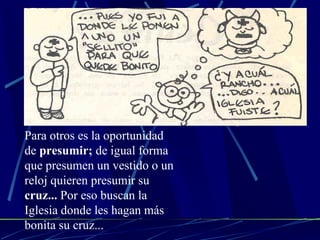 ...PUES YO FUI A
DONDE LE PONEN
A UNO UN
"SELLITO"
PARA QUE
QUEDE BONITO
¿Y A CUÁL
RANCHO...
...DIGO.. A CUAL
IGLESIA
FUISTE?
Para otros es la oportunidad
de presumir; de igual forma
que presumen un vestido o un
reloj quieren presumir su
cruz... Por eso buscan la
Iglesia donde les hagan más
bonita su cruz...